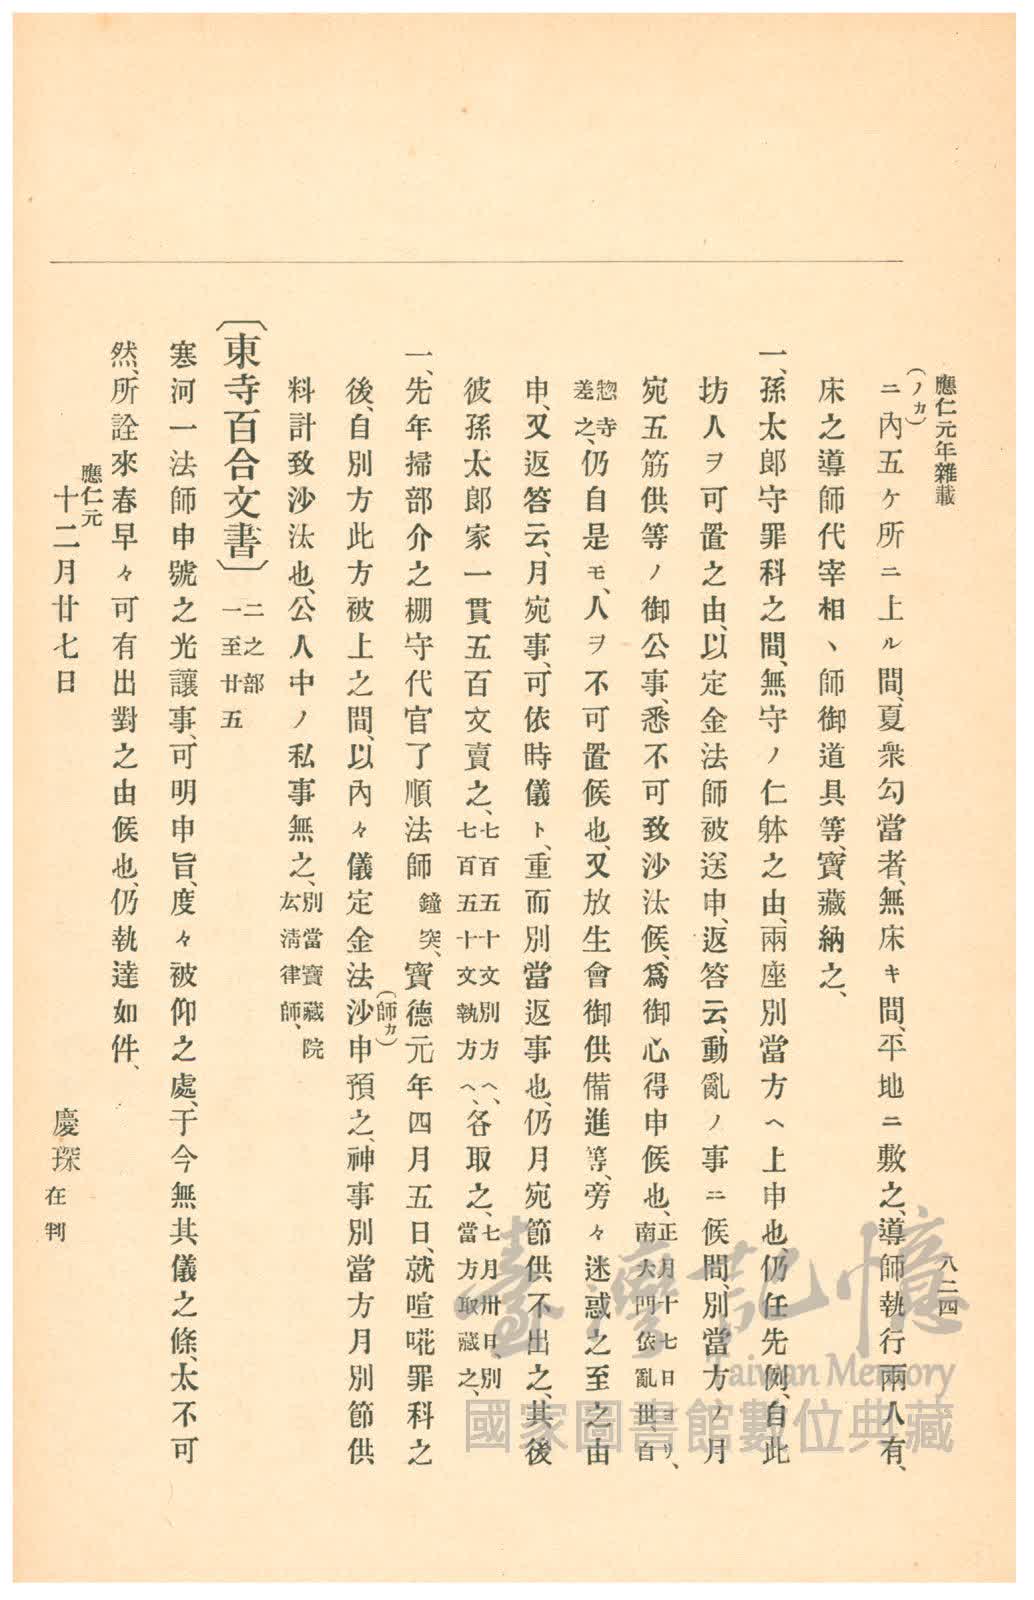 應仁元年雜載
八二四
(ノカ)
ニ內五ケ所ニ上ル間、夏衆勾當者、無床キ間、平地ニ敷之、導師執行兩人有、
床之導師代宰相、師御道具等、寶藏納之、
一、孫太郎守罪科之間、無守ノ仁躰之由、兩座別當方ヘ上申也、仍任先例、自此
坊人ヲ可置之由、以定金法師被送申、返答云、動亂ノ事ニ候間、別當方ノ月
宛五筋供等ノ御公事、悉不可致沙汰候、爲御心得申候也、正月十七日ヨリ、
南大門依亂世、百
惣寺
差之、仍自是モ、人ヲ不可置候也、又放生會御供備進等、旁々迷惑之至之由
申、又返答云、月宛事、可依時儀ト、重而別當返事也、仍月宛節供不出之、其後
彼孫太郎家一貫五百文賣之、七百五十文別方ヘ、
七百五十文執方ヘ、各取之、七月卅日、別
當方取藏之、
一、先年掃部介之棚守代官了順法師鐘突、寶德元年四月五日、就喧咜罪科之
(師カ)
後、自別方此方被上之間、以內々儀定金法沙申預之、神事別當方月別節供
料計致沙汰也、公人中ノ私事無之、別當寶藏院
玄淸律師、
〔東寺百合文書〕二之部
一至廿五
寒河一法師申號之光讓事、可明申旨、度々被仰之處、于今無其儀之條、太不可
然、所詮來春早々可有出對之由候也、仍執達如件、
應仁元
十二月廿七日
慶琛在判
臺灣記憶
Taiwan Memory
國家圖書館數位典藏